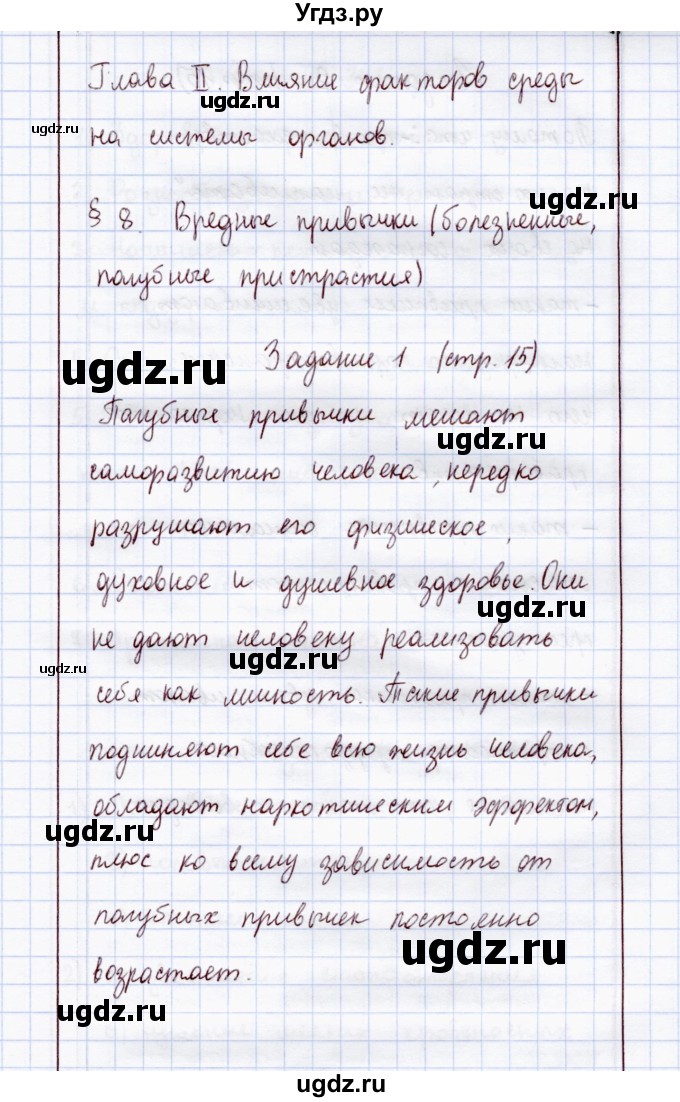 Угдз.ру
Глава II. Влияние факторов среды
ugdz.ru
ugdz.ru
на системы органов.
ugdz.ru
§ 8. Вредные привычки (болезненные,
пагубные пристрастия)
Задание 1 (стр. 15)
ugdz.ru
Пагубные привычки мешают
ugdz.ru
саморазвитию человека, нередко
разрушают его физическое,
духовное и душевное здоровье. Они
ugdz.ru
не дают человеку реализовать
ugdz.ru
ugdz.ru
себя как личность. Такие привычки
подчиняют себе всю жизнь человека,
обладают наркотическим эффектом,
ugdz.ru
плюс ко всему зависимость от
пагубных привычек постоянно
ugdz.ru
возрастает.
ugdz.ru
ugdz.ru